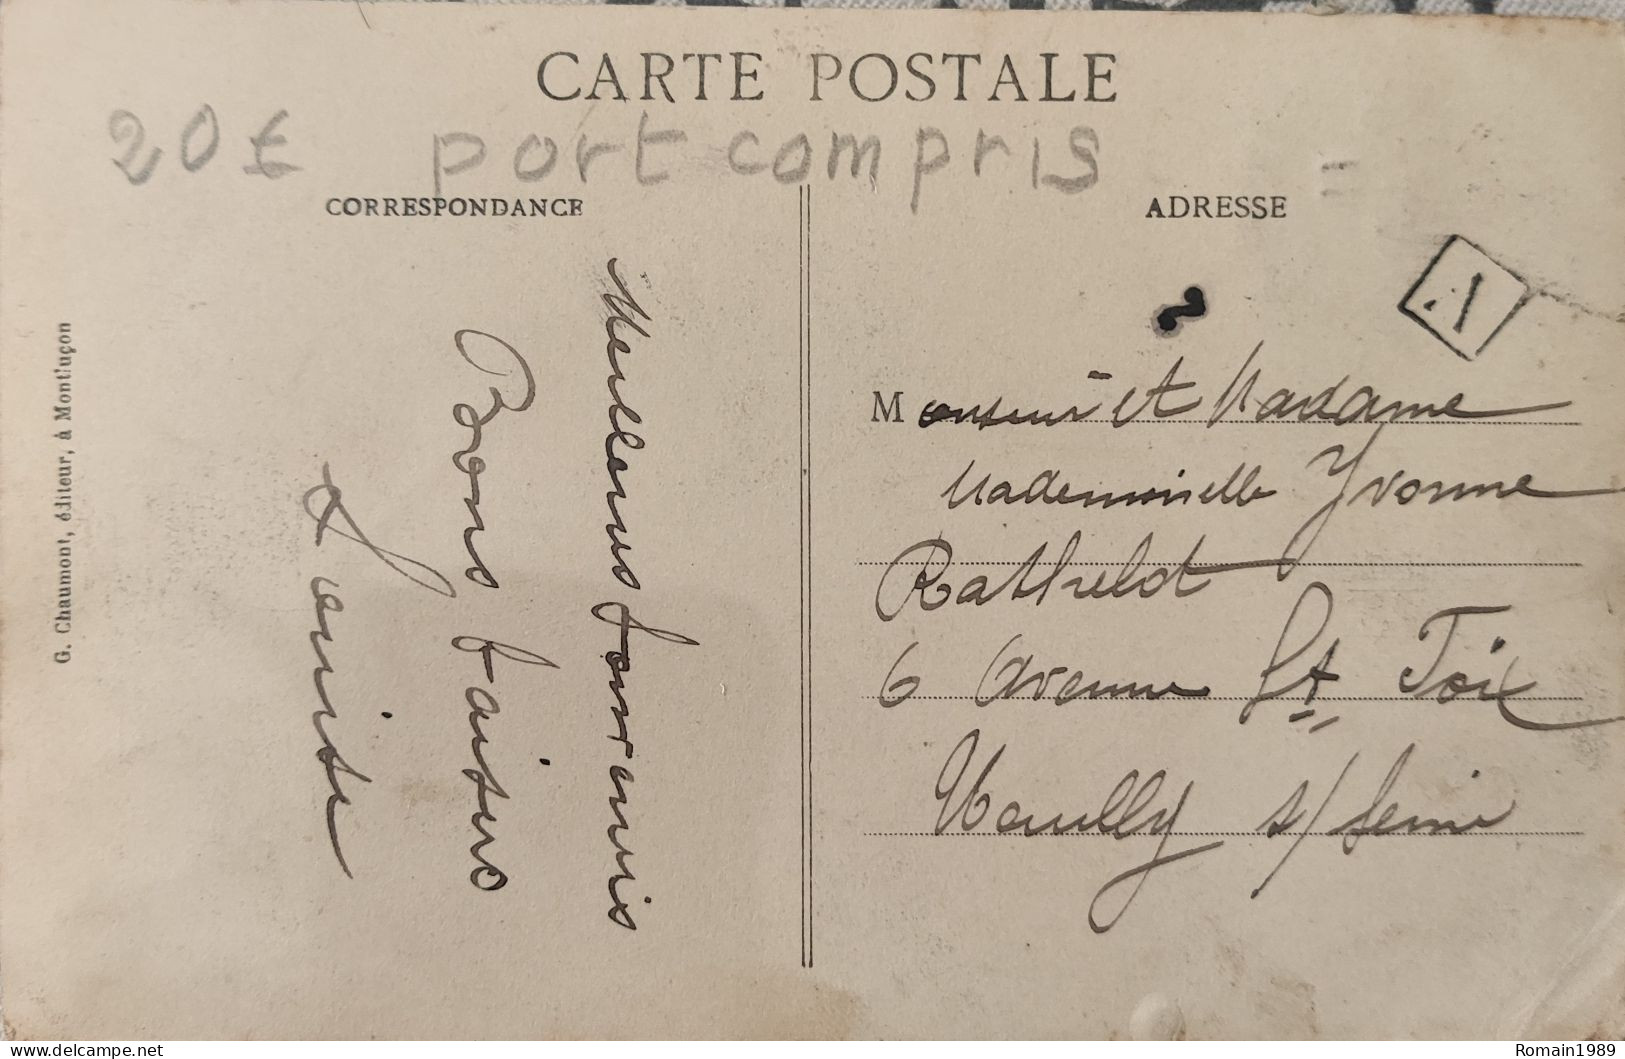 CARTE POSTALE
20€ port compris
CORRESPONDANCE
ADRESSE
A
Meilleurs souvenirs
Bons baisers
Louise
Monsieur et Madame
Mademoiselle Yvonne
Rathelot
6 Avenue St Foix
Neuilly s/ Seine
G. Chaumont, éditeur, à Montluçon
delcampe.net
Romain1989